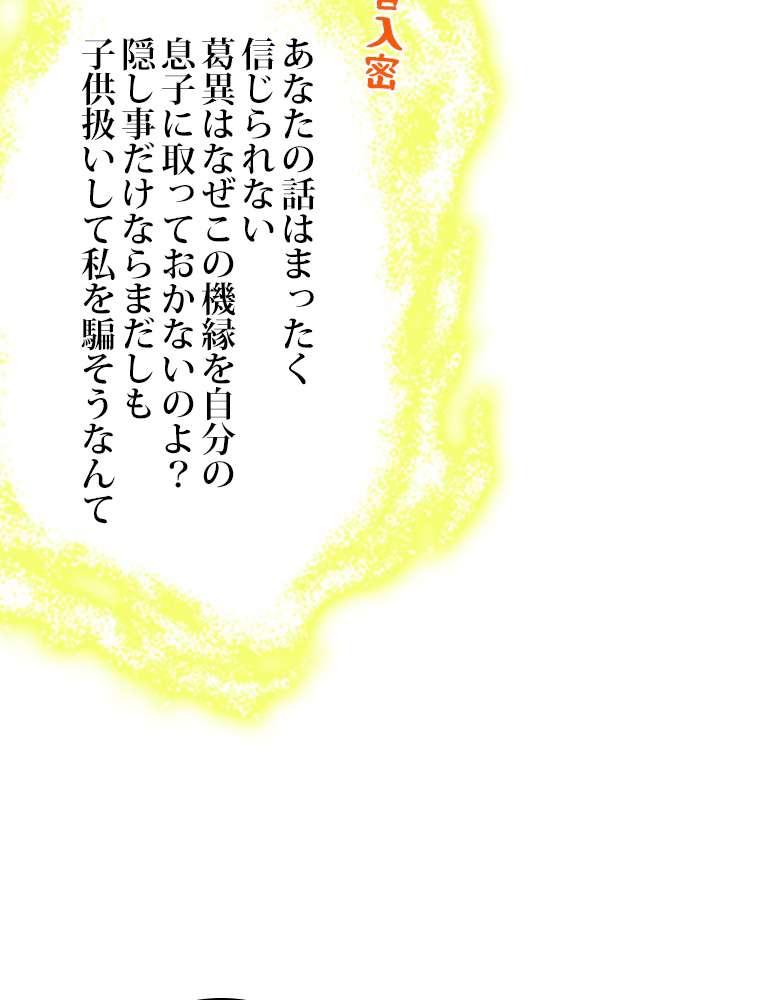 人密
あなたの話はまったく
信じられない
葛異はなぜこの機縁を自分の
息子に取っておかないのよ？
隠し事だけならまだしも
子供扱いして私を騙そうなんて